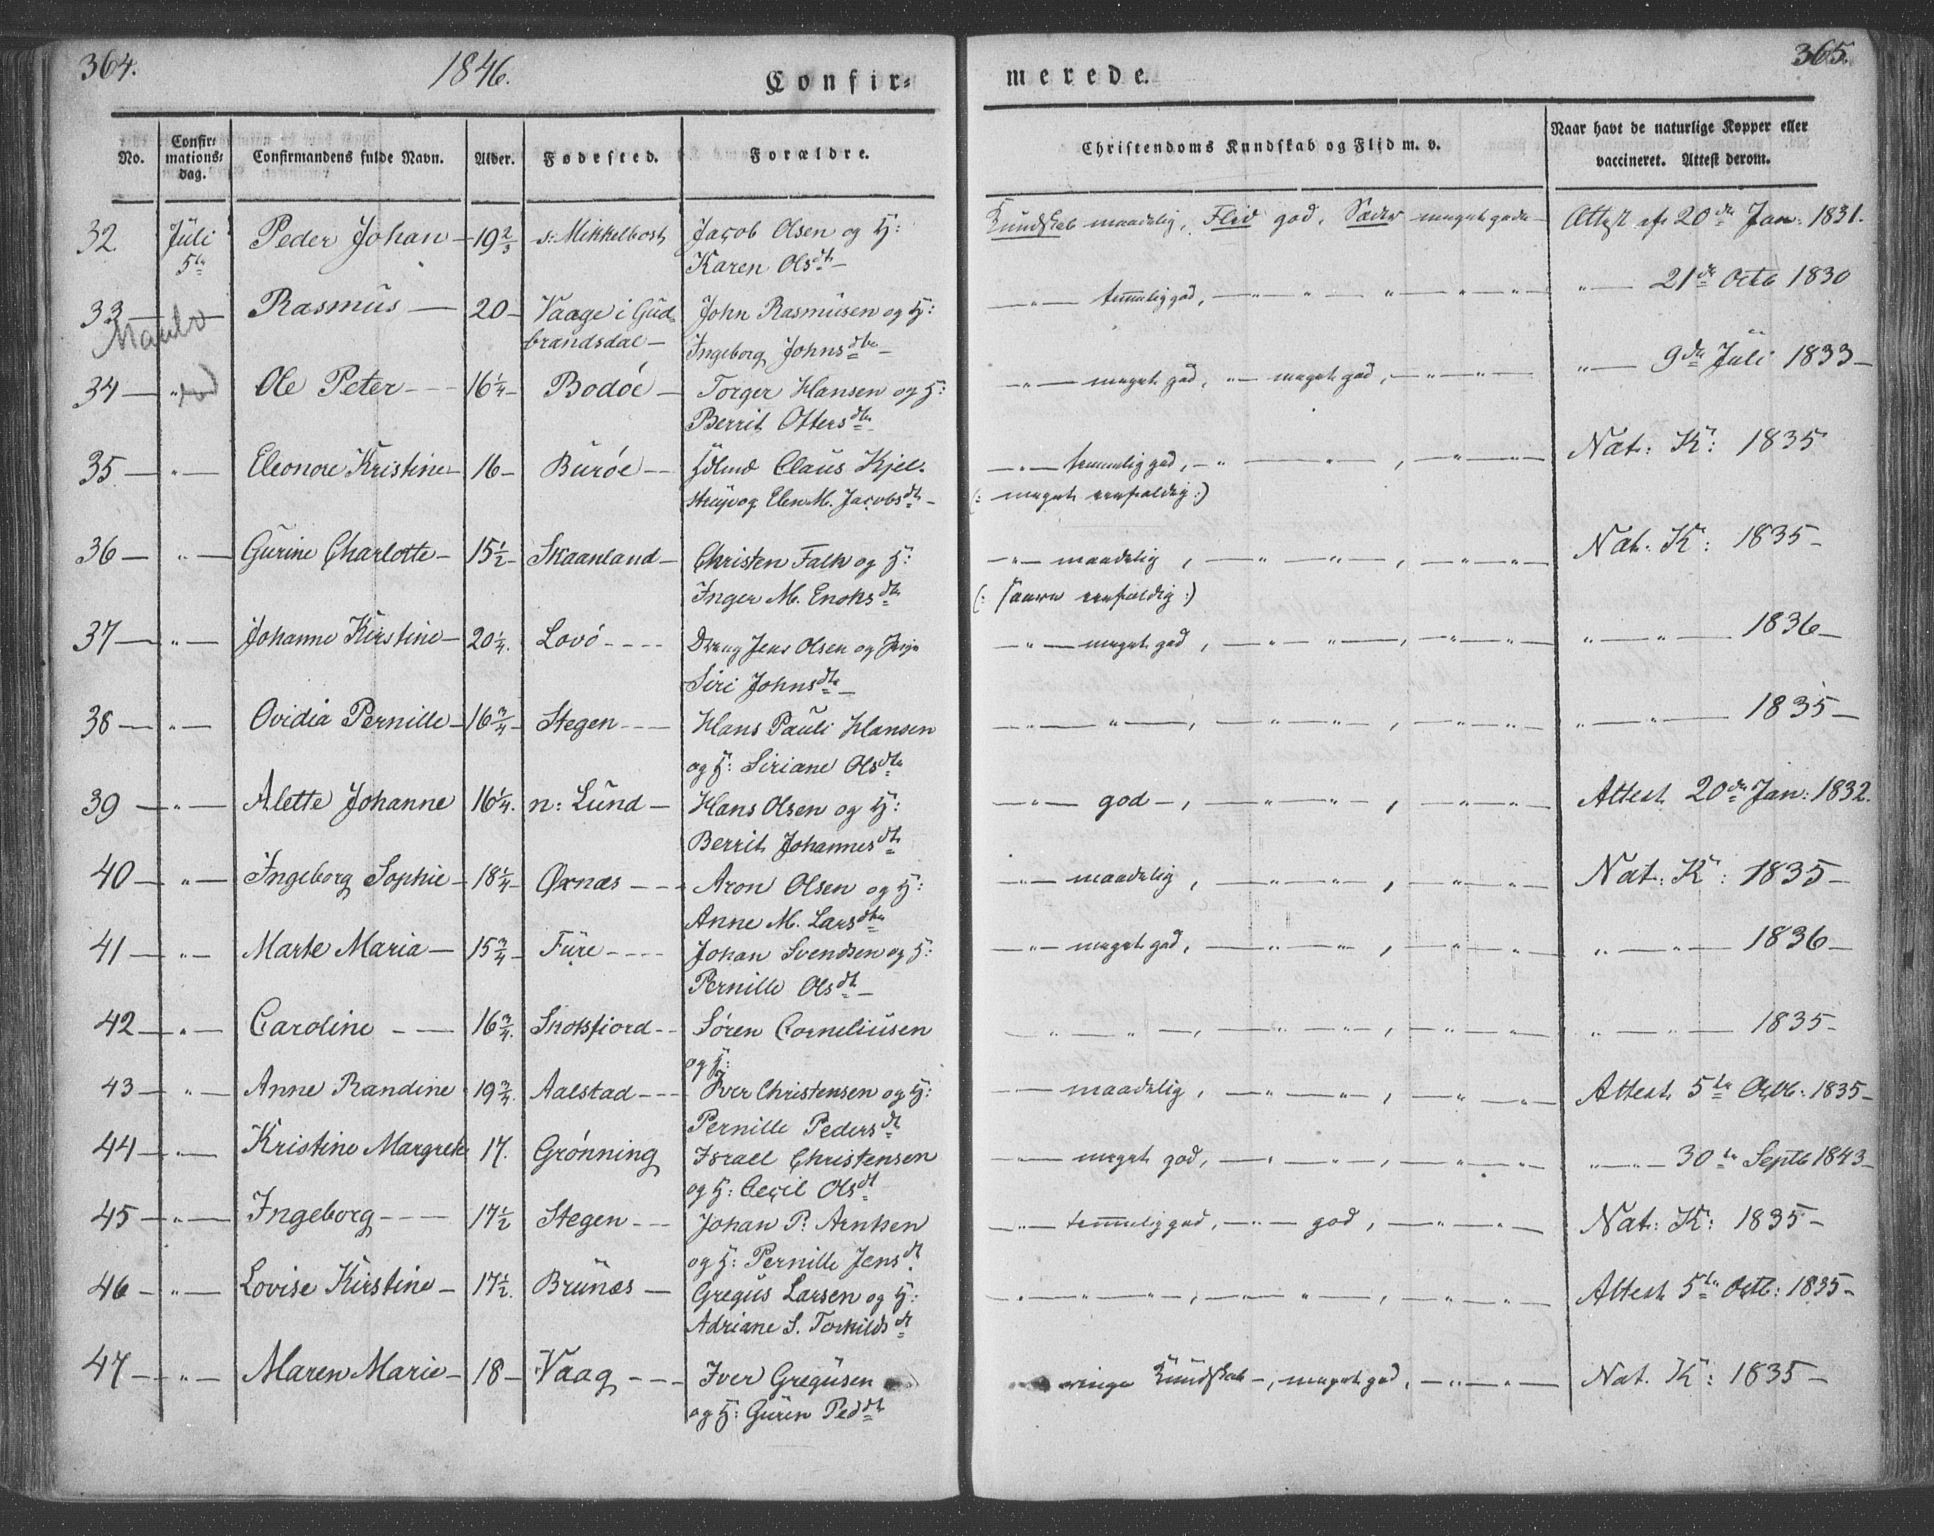 364.
1846.
Confir-
merede.
365.
No.
Confir-
mations-
dag.
Confirmandens fulde Navn.
Alder.
Fødested.
Forældre.
Christendoms Kundskab og Flid m. v.
Naar havt de naturlige Kopper eller
vaccineret. Attest derom.
32 Juli Peder Johan — 19 2/3 s: Mikkelbost Jacob Olsen og H: Kundskab maadelig, Flid god, Sæder meget gode — Attest af 20de Jan: 1831.
5te Karen Olsdt —
33 — Rasmus — 20 — Vaage i Gud John Rasmusen og H: — " — temmelig god, — " — " " " " — 21de Octb 1830
brandsdal — Ingeborg Johnsdtr —
34 — " Ole Peter — 16 1/4 — Bodöe — Torger Hansen og H: — " — meget god, " — meget god, — " — " — " " — 9de Juli 1833 —
Berrit Ottersdtr
35 — " — Eleonore Kristine — 16 — Buröe — Claus Kjel- — " — temmelig god, — " — " — , — " — " — Nat: K: 1835
strup og Elen M. Jacobsdt —
(: meget eenfoldig :)
36 — " — Gurine Charlotte — 15 1/2 — Skaanland — Christen Falk og H: — " — maadelig , — " — " — , — " — " — Nat: K: 1835 —
Inger M. Enoksdtr
(: saare eenfoldig :)
37 — " — Johanne Kirstine — 20 1/4. Lovö — Jens Olsen og Pige — " — meget god , — " — " — , — " — " — " — " — 1836 —
Siri Johnsdtr —
38 — " — Ovidia Pernille — 16 3/4 — Stegen — Hans Pauli Hansen — " — " — , — " — " — , — " — " — " — " — 1835 —
og H: Siriane Olsdtr
39 — " — Alette Johanne 16 1/4. n: Lund — Hans Olsen og H: — " — god — , — " — " — , — " — " — Attest 20de Jan: 1832.
Berrit Johannesdt
40 — " — Ingeborg Sophie — 18 1/4 — Oxnæs — Aron Olsen og H: — " — maadelig , — " — " — , — " — " — Nat: K: 1835 —
Anne M. Larsdtr
41 — " — Marte Maria — 15 3/4 — Fure — Johan Svendsen og H: — " — meget god , — " — " — , — " — " — " — " — 1836 —
Pernille Olsdt —
42 — " — Caroline — 16 3/4. Skotsfiord — Sören Corneliusen — " — " — , — " — " — , — " — " — " — " — 1835 —
og H:
43 — " — Anne Randine 19 3/4. Aalstad — Iver Christensen og H: — " — maadelig , — " — " — , — " — " — Attest 5te Octb: 1835 —
Pernille Pedersdt
44 — " — Kristine Margrete 17. Grönning Israel Christensen — " — meget god, — " — " — , — " — " — " — " — 30te Septb 1843 —
og H: Cecil Olsdt
45 — " — Ingeborg — 17 1/2 Stegen — Johan P. Arntsen — " — temmelig god, — " — god , — " — " — Nat: K: 1835 —
og H: Pernille Jensdt.
46 — " — Lovise Kirstine — 17 1/2. Brunæs — Gregus Larsen og H: — " — " — , — " — " — , — " — " — Attest 5te Octb: 1835 —
Adriane S. Torkildsdt
47 — " — Maren Marie — 18 — Vaag — Iver Gregusen ringe Kundskab — , meget god , — " — " — Nat. K: 1835 —
og H: Guren Peddt